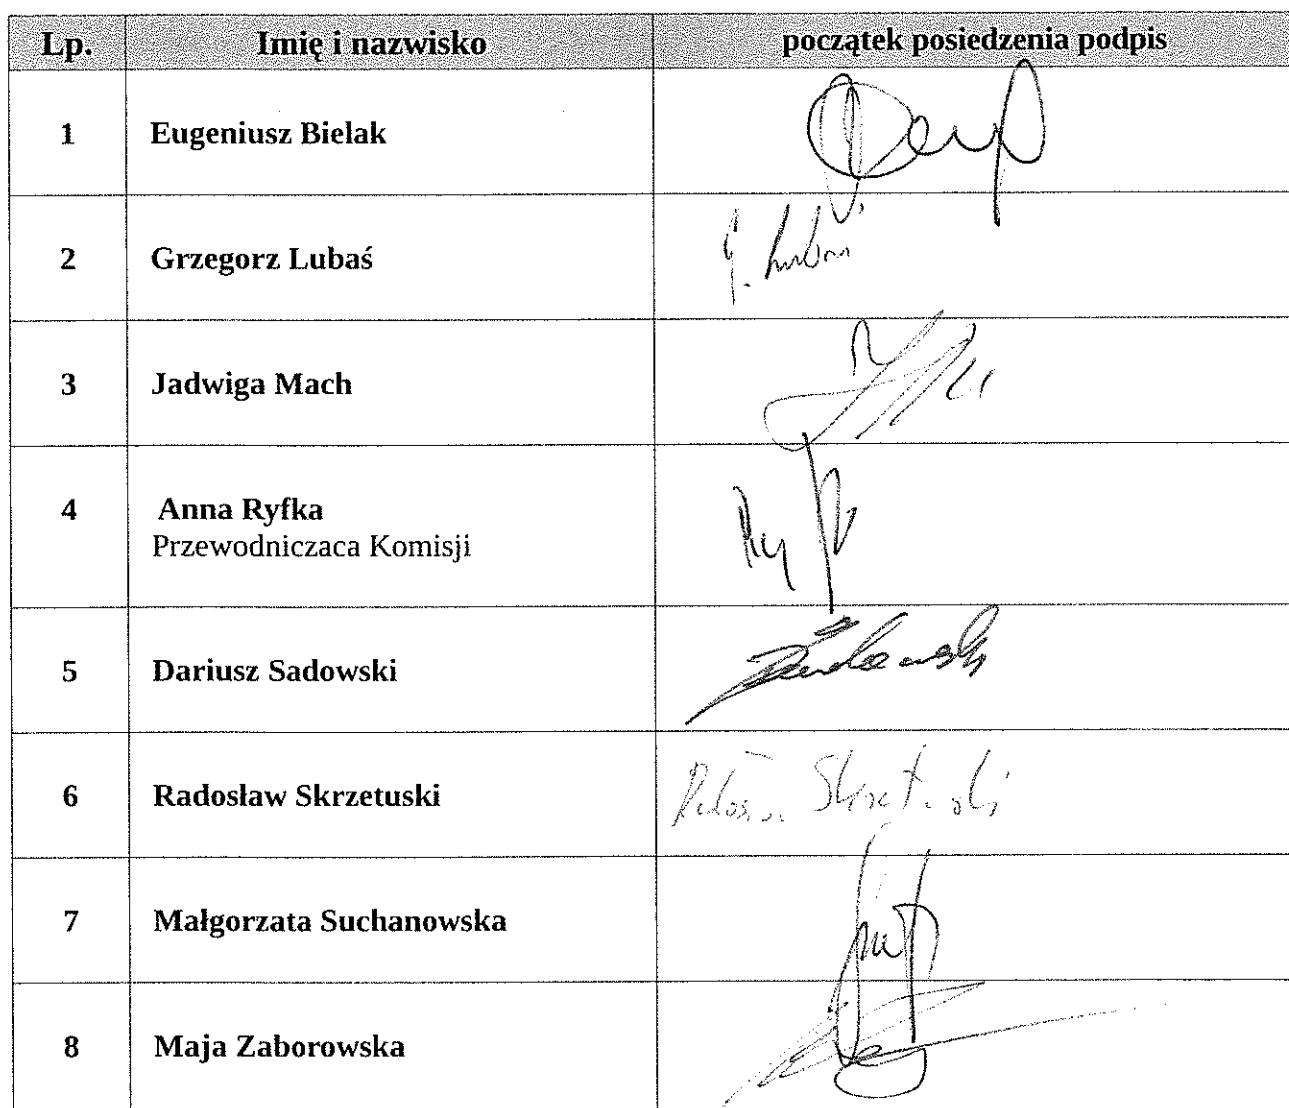 Lp. Imię i nazwisko początek posiedzenia podpis
1 Eugeniusz Bielak
2 Grzegorz Lubaś
3 Jadwiga Mach
4 Anna Ryfka
Przewodniczaca Komisji
5 Dariusz Sadowski
6 Radosław Skrzetuski
7 Małgorzata Suchanowska
8 Maja Zaborowska